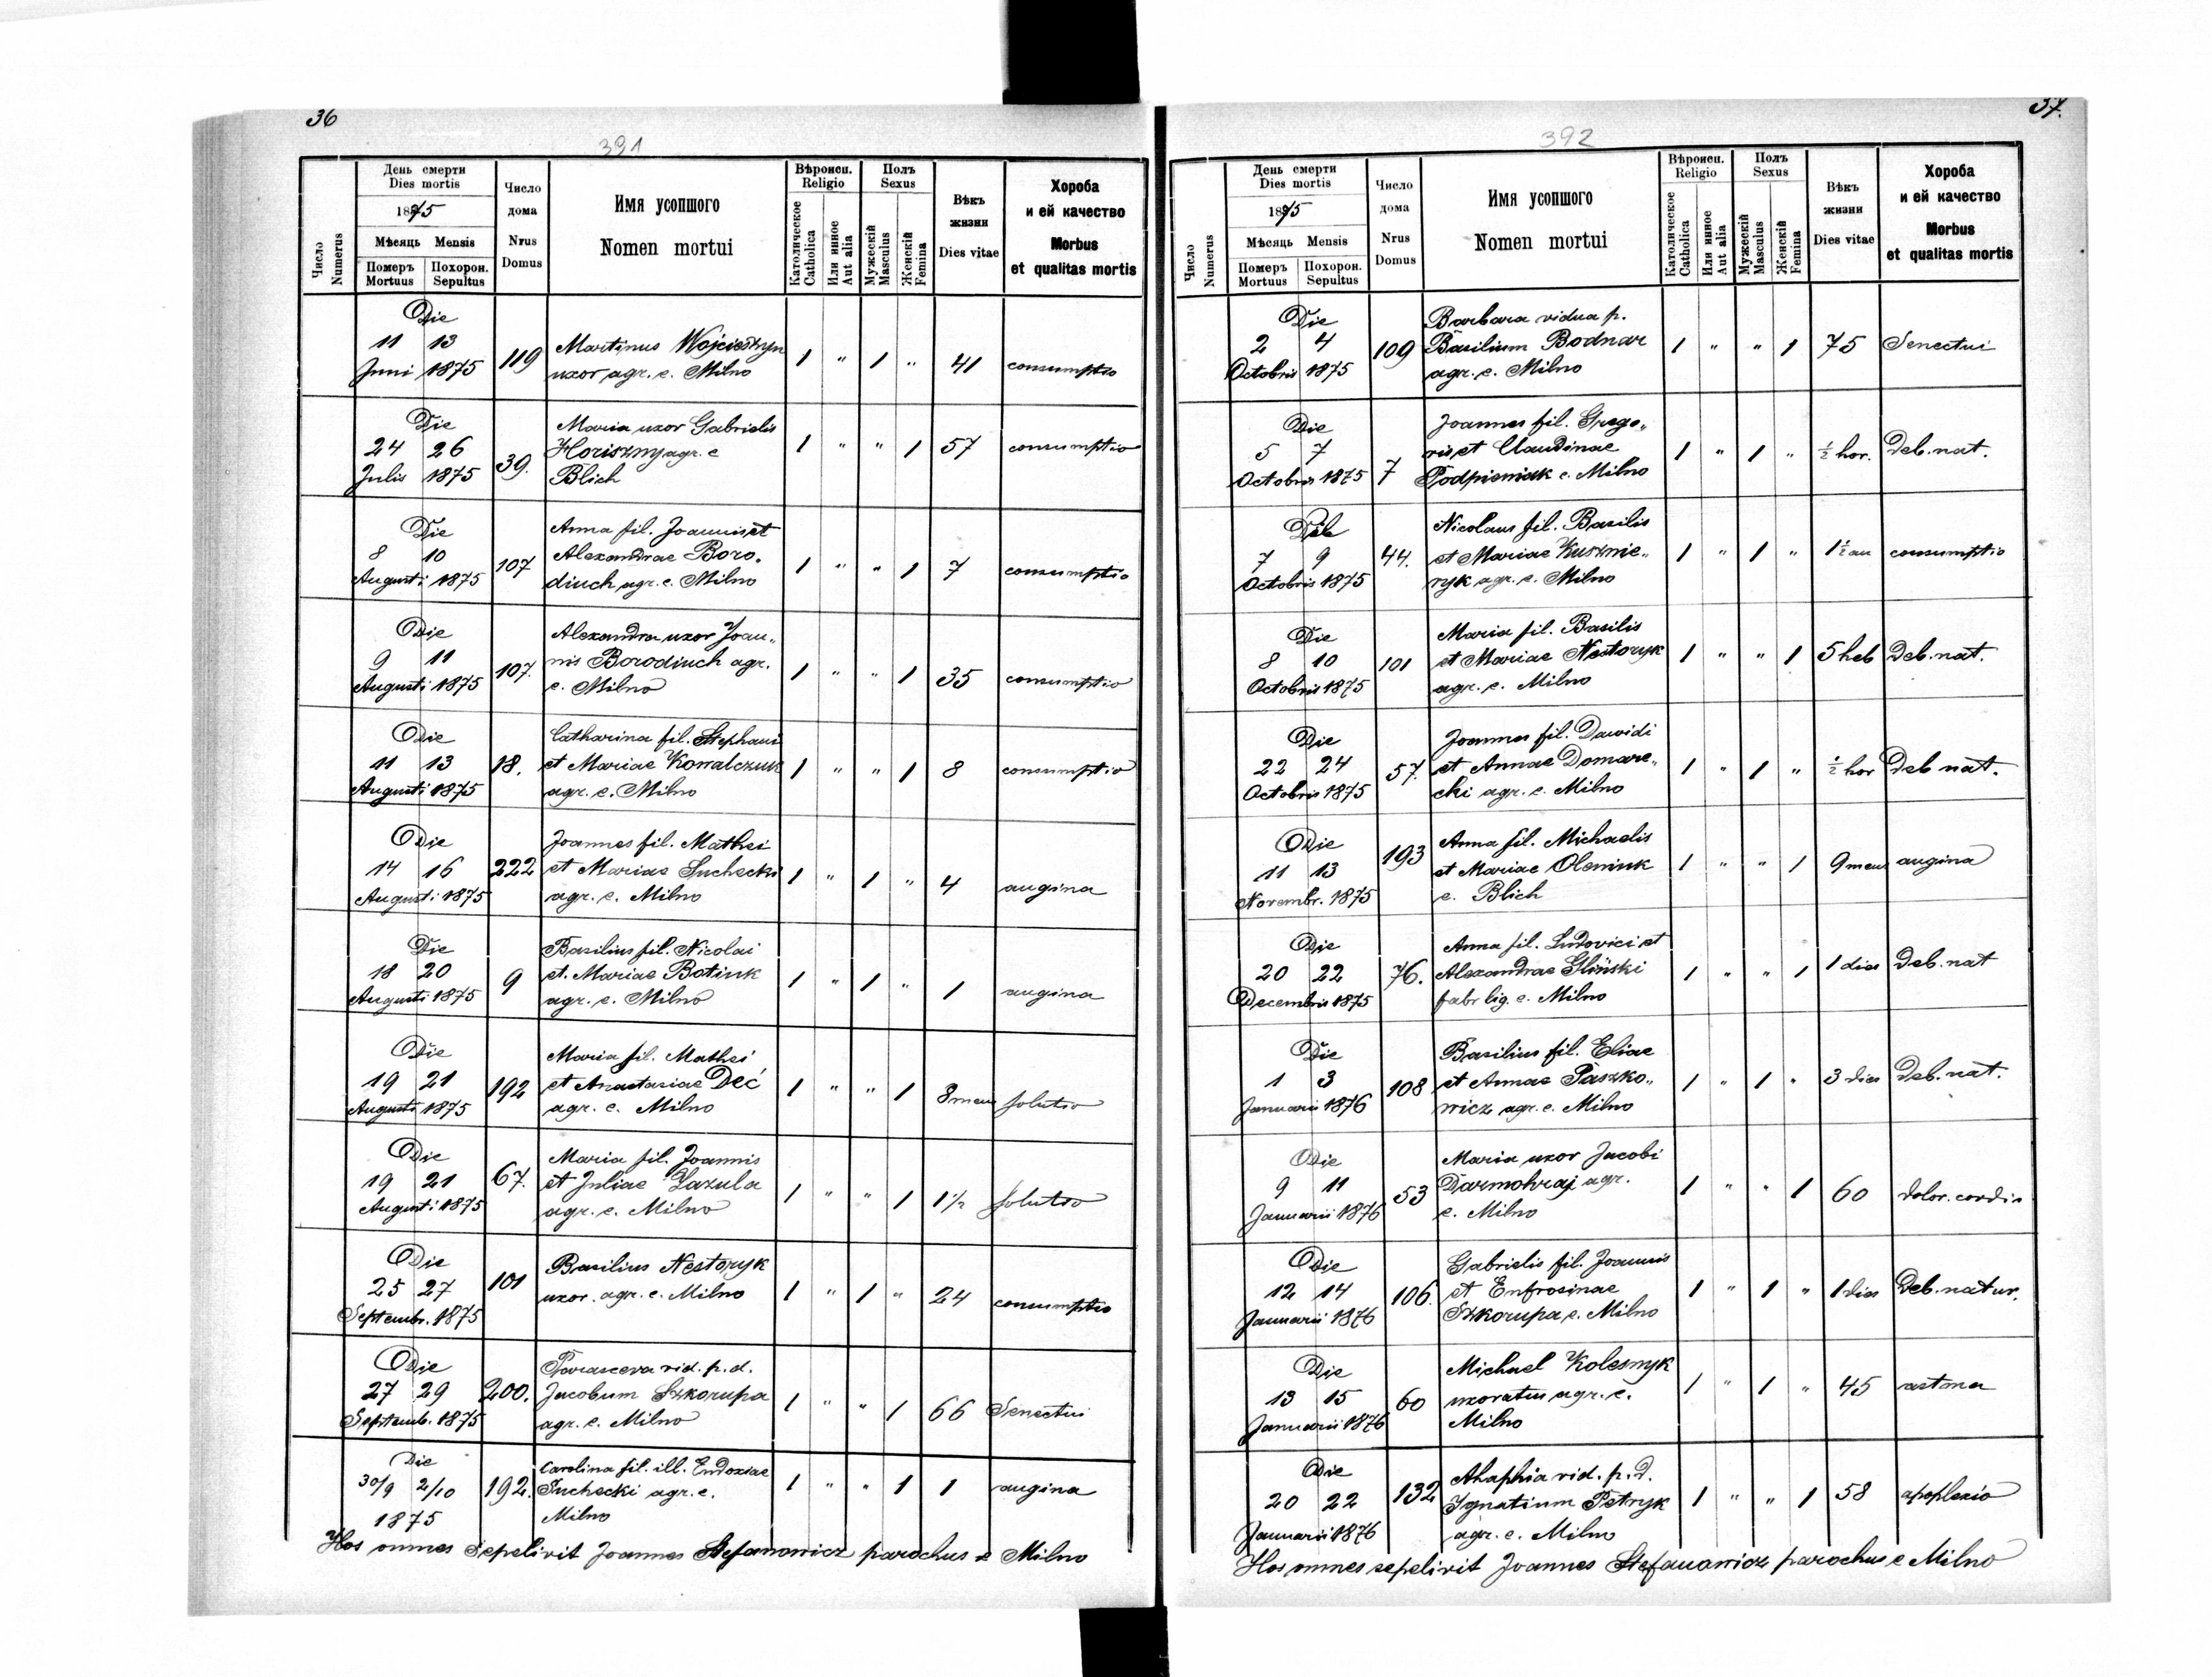 36
391
Число
Numerus
День смерти
Dies mortis
1875
Мѣсяць Mensis
Померъ
Mortuus
Похорон.
Sepultus
Число
дома
Nrus
Domus
Имя усопшого
Nomen mortui
Вѣроисп.
Religio
Католическое
Catholica
Или инное
Aut alia
Полъ
Sexus
Мужескій
Masculus
Женскій
Femina
Вѣкъ
жизни
Dies vitae
Хороба
и ей качество
Morbus
et qualitas mortis
Die
11 13
Juni 1875
119
Martinus
uxor agr. e. Milno
1 " 1 " 41 consumptio
Die
24 26
Julis 1875
39.
Maria uxor Gabrielis
Horiszny agr. e
Blich
1 " " 1 57 consumptio
Die
8 10
Augusti 1875
107
Anna fil. Joannis et
Alexandrae Boro„
diuch agr. e. Milno
1 " " 1 7 consumptio
Die
9 11
Augusti 1875
107.
Alexandra uxor Joan„
nis Borodiuch agr.
e. Milno
1 " " 1 35 consumptio
Die
11 13
Augusti 1875
18.
Catharina fil. Stephani
et Mariae Kowalczuk
agr. e. Milno
1 " " 1 8 consumptio
Die
14 16
Augusti 1875
222
Joannes fil. Mathei
et Mariae Suchecki
agr. e. Milno
1 " 1 " 4 angina
Die
18 20
Augusti 1875
9
Basilius fil. Nicolai
et. Mariae Botiuk
agr. e. Milno
1 " 1 " 1 angina
Die
19 21
Augusti 1875
192
Maria fil. Mathei
et Anastasiae Deć
agr. e. Milno
1 " " 1 8 mens solutio
Die
19 21
Augusti 1875
67.
Maria fil. Joannis
et Juliae Zazula
agr. e. Milno
1 " " 1 1½ solutio
Die
25 27
Septembr. 1875
101
Basilius Nestoryk
uxor. agr. e. Milno
1 " 1 " 24 consumptio
Die
27 29
Septemb. 1875
200.
Parasceva vid. p. d.
Jacobum Szkorupa
agr. e. Milno
1 " " 1 66 Senectui
Die
30/9 2/10
1875
192.
Carolina fil. ill. Eudoxiae
Suchecki agr. e.
Milno
1 " " 1 1 angina
Hos omnes sepelivit Joannes Stefanowicz parochus e Milno
37.
392
Число
Numerus
День смерти
Dies mortis
1875
Мѣсяць Mensis
Померъ
Mortuus
Похорон.
Sepultus
Число
дома
Nrus
Domus
Имя усопшого
Nomen mortui
Вѣроисп.
Religio
Католическое
Catholica
Или инное
Aut alia
Полъ
Sexus
Мужескій
Masculus
Женскій
Femina
Вѣкъ
жизни
Dies vitae
Хороба
и ей качество
Morbus
et qualitas mortis
Die
2 4
Octobris 1875
109
Barbara vidua p.
Basilium Bodnar
agr. e. Milno
1 " " 1 75 Senectui
Die
5 7
Octobris 1875
7
Joannes fil. Grego„
ris et Claudinae
Podpieniak e. Milno
1 " 1 " ½ hor. Deb. nat.
Die
7 9
Octobris 1875
44.
Nicolaus fil. Basilis
et Mariae Kusznie„
ryk agr. e. Milno
1 " 1 " 1½ an consumptio
Die
8 10
Octobris 1875
101
Maria fil. Basilis
et Mariae Nestoryk
agr. e. Milno
1 " " 1 5 heb Deb. nat.
Die
22 24
Octobris 1875
57.
Joannes fil. Davidi
et Annae Domare„
cki agr. e. Milno
1 " 1 " ½ hor Deb nat.
Die
11 13
Novembr. 1875
193
Anna fil. Michaelis
et Mariae Oleniuk
e. Blich
1 " " 1 9 mens angina
Die
20 22
Decembris 1875
76.
Anna fil. Ludovici et
Alexandrae Gliński
fabr lig. e. Milno
1 " " 1 1 dies Deb. nat
Die
1 3
Januarii 1876
108
Basilius fil. Eliae
et Annae Paszko„
wicz agr. e. Milno
1 " 1 " 3 dies Deb. nat.
Die
9 11
Januarii 1876
53
Maria uxor Jacobi
Darmohraj agr.
e. Milno
1 " " 1 60 dolor. cordis
Die
12 14
Januarii 1876
106.
Gabrielis fil. Joannis
et Eufrosinae
Szkorupa e. Milno
1 " 1 " 1 dies Deb. natur.
Die
13 15
Januarii 1876
60
Michael Kolesnyk
uxoratus agr. e.
Milno
1 " 1 " 45 astma
Die
20 22
Januarii 1876
132
Ahaphia vid. p. d.
Ignatium Petryk
agr. e. Milno
1 " " 1 58 apoplexio
Hos omnes sepelivit Joannes Stefanowicz parochus e Milno